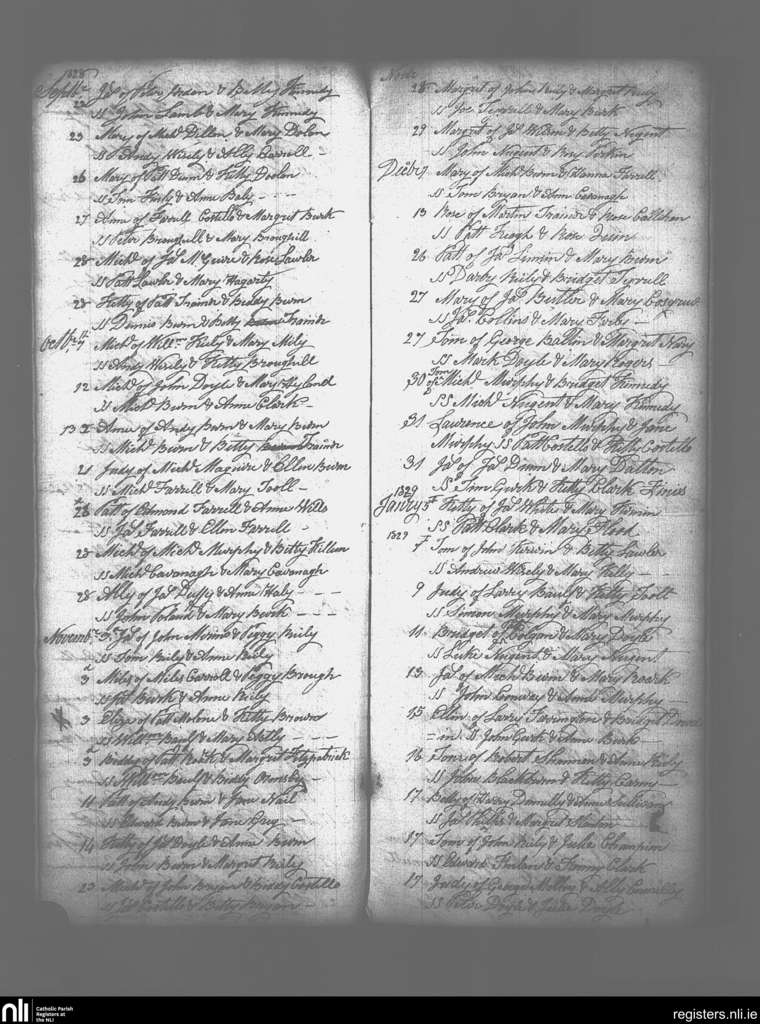 1828
Septbr Jas of Peter Breen & Bibby Kennedy
22 SS John Lamb & Mary Kennedy
23 Mary of Matt Dillon & Mary Dolen
SS Andy Wisely & Ally Carroll
26 Mary of Patt Quin & Kitty Doolen
SS Tim Healy & Anne Daly
27 Anne of Farrell Costello & Margret Burk
SS Peter Broughill & Mary Broughill
28 Michl of Jas McGuire & Rose Lawlor
SS Patt Lawler & Mary Hagarty
28 Kitty of Patt Trainor & Biddy Burn
SS Dennis Burn & Betty Trainor
Octbr 4th Michl of Willm Kiely & Mary Mily
SS Andy Wisely & Kitty Broughill
12 Michl of John Doyle & Mary Hyland
SS Michl Burn & Anne Clark
13 Anne of Andy Burn & Mary Burn
SS Michl Burn & Betty Trainor
21 Judy of Michl Maguire & Ellen Burn
SS Michl Farrell & Mary Tooll
28 Patt of Edmond Farrell & Anne Wills
SS Jas Farrell & Ellen Farrell
28 Michl of Michl Murphy & Betty Killen
SS Michl Cavanagh & Mary Cavanagh
28 Ally of Jas Duffy & Anne Haly
SS John Toland & Mary Burk
Novembr 3 Jas of John Mirins & Peggy Reily
SS Tom Reily & Anne Reily
3 Miles of Miles Carroll & Peggy Brough
SS Pat Burk & Anne Reily
3 Eliza of Patt Malone & Kitty Brown
SS Willm Bauls & Mary Kelly
3 Biddy of Patt & Margret Fitzpatrick
SS Willm Baul & Biddy Ormsby
11 Patt of Andy Burn & Jane Nail
SS Edward Burn & Jane
14 Kitty of Jas Doyle & Anne Burn
SS John Burn & Margret Reily
23 Michl of John Bryan & Biddy Costello
SS Jas Costello & Betty Bryan
Novbr
28 Margret of John Reily & Margret Reily
SS Joe Tyrrell & Mary Burk
29 Margret of Jas Wilson & Betty Nugent
SS John Nugent & Mary
Decbr 7 Mary of Michl Burn & Hanna Farrell
SS Tom Bryan & Ann Cavanagh
13 Rose of Martin Trainor & Rose Callehan
SS Patt Keogh & Rose Quin
26 Patt of Jas Simin & Mary Burn
SS Darby Reily & Bridget Tyrrell
27 Mary of Jas Butler & Mary Cosgrave
SS Jas Collins & Mary
27 Tom of George Dalton & Margret
SS Mark Doyle & Mary Rogers
30 Tom of Michl Murphy & Bridget Kennedy
SS Michl Nugent & Mary Kennedy
31 Lawrence of John Murphy & Jane
Murphy SS Patt Costello & Costello
31 Jas of Jas Dunn & Mary Dalton
SS Tim Quirk & Kitty Clark
1829
Janry 5th Kitty of Jas White & Mary Kirwin
SS Patt Clark & Mary Flood
1829
7 Tom of John Kerwin & Betty Lawler
SS Andrew Wisely & Mary Kelly
9 Judy of Larry Bauls & Kitty Toole
SS Simon Murphy & Mary Murphy
11 Bridget of Colgan & Mary Doyle
SS Luke Nugent & Mary Nugent
13 Jas of Michl Burn & Mary Roark
SS John Conway & Anne Murphy
15 Ellen of Larry Farrington & Bridget
SS John Quirk & Ann Burk
16 Tom of Robert Shannon & Anne
SS John Blackburn & Kitty
17 Betty of Harry Donnelly & Anne Sullivan
SS Jas & Margret
17 Tom of John Reily & Julia Champion
SS Edward & Fanny Clark
17 Judy of George Mellon & Ally Connolly
SS Peter Doyle & Doyle
nli
Catholic Parish
Registers at
the NLI
registers.nli.ie